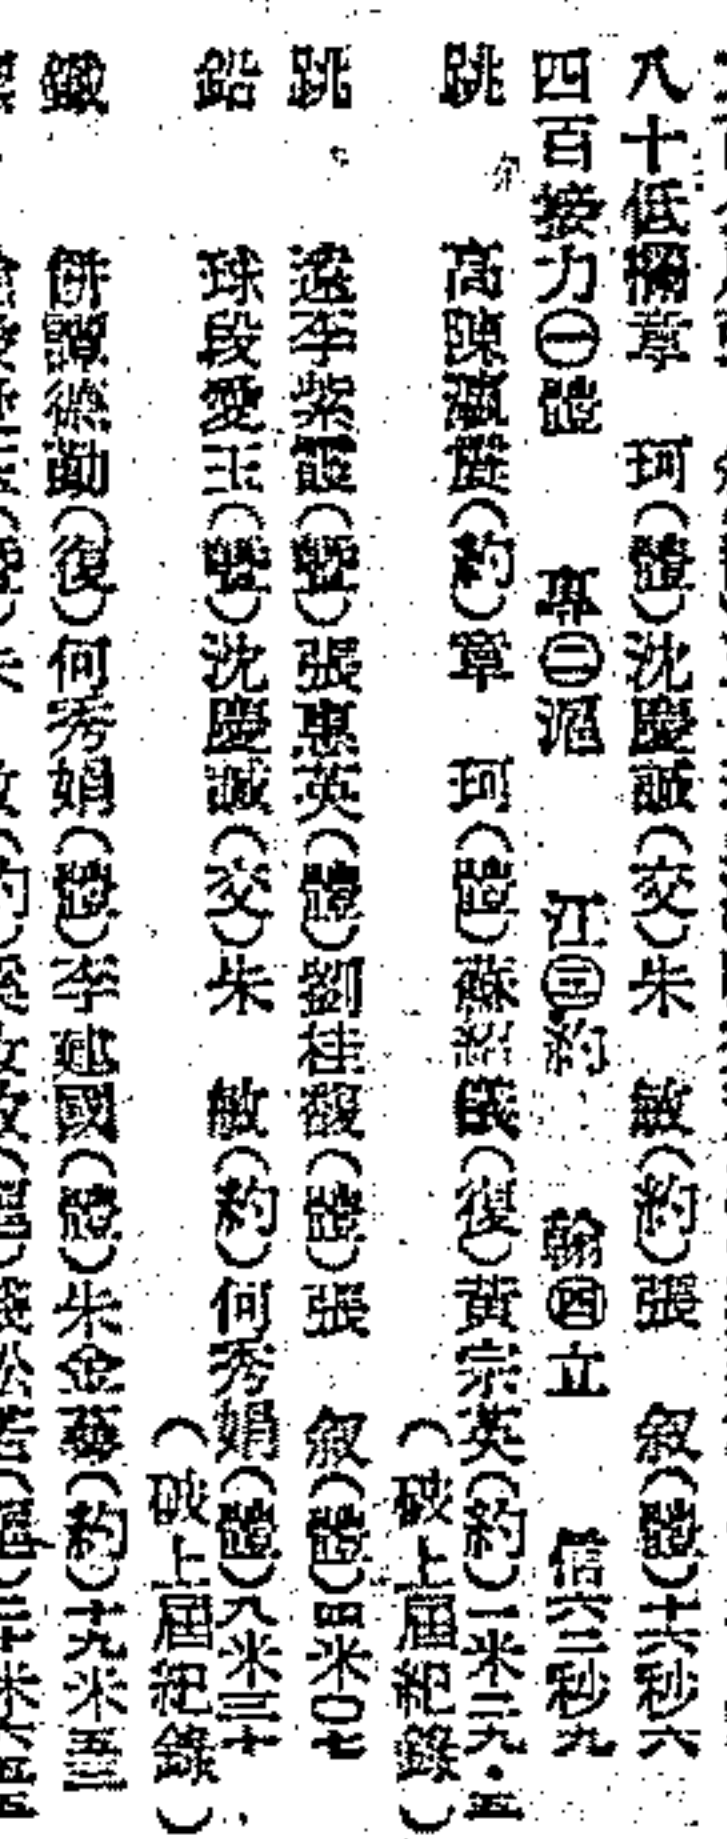 八十低欄章 珂(體)沈慶誠(交)朱 敏(約)張 叙(體)十六秒六
四百接力㊀體 專㊁滬 江㊂約 翰㊃立 信六二秒九
跳 高陳瀛(約)章 珂(體)蘇紹儀(復)黃宗英(約)一米二九·五
(破上屆紀錄)
跳 遠李紫霞 張惠英(體)劉桂馥(體)張 叙(體)四米〇七
鉛 球段愛玉 沈慶誠(交)朱 敏(約)何秀娟(體)八米三十
(破上屆紀錄)
鐵 餅譚德勤(復)何秀娟(體)李建國(體)朱金 (約)十九米五三